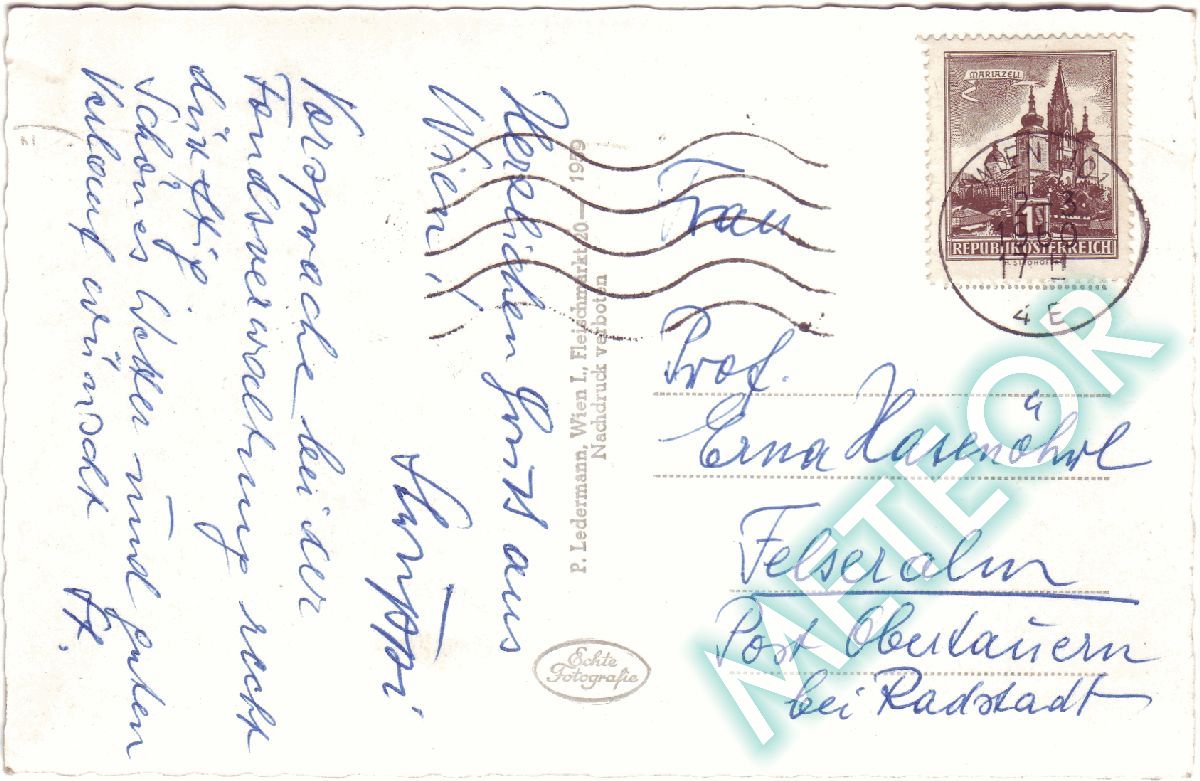 Herzlichen Gruß aus
Wien!
Vorsprache bei der
Fondsverwaltung recht
Schönes Wetter und guten
Verlauf wünscht
P. Ledermann, Wien I., Fleischmarkt 20— 1959
Nachdruck verboten
Echte
Fotografie
MARIAZELL
1S
REPUBLIK ÖSTERREICH
WIEN 101
17-
4 E
Frau
Prof.
Erna Hasenöhrl
Felseralm
Post Obertauern
bei Radstadt
METEOR